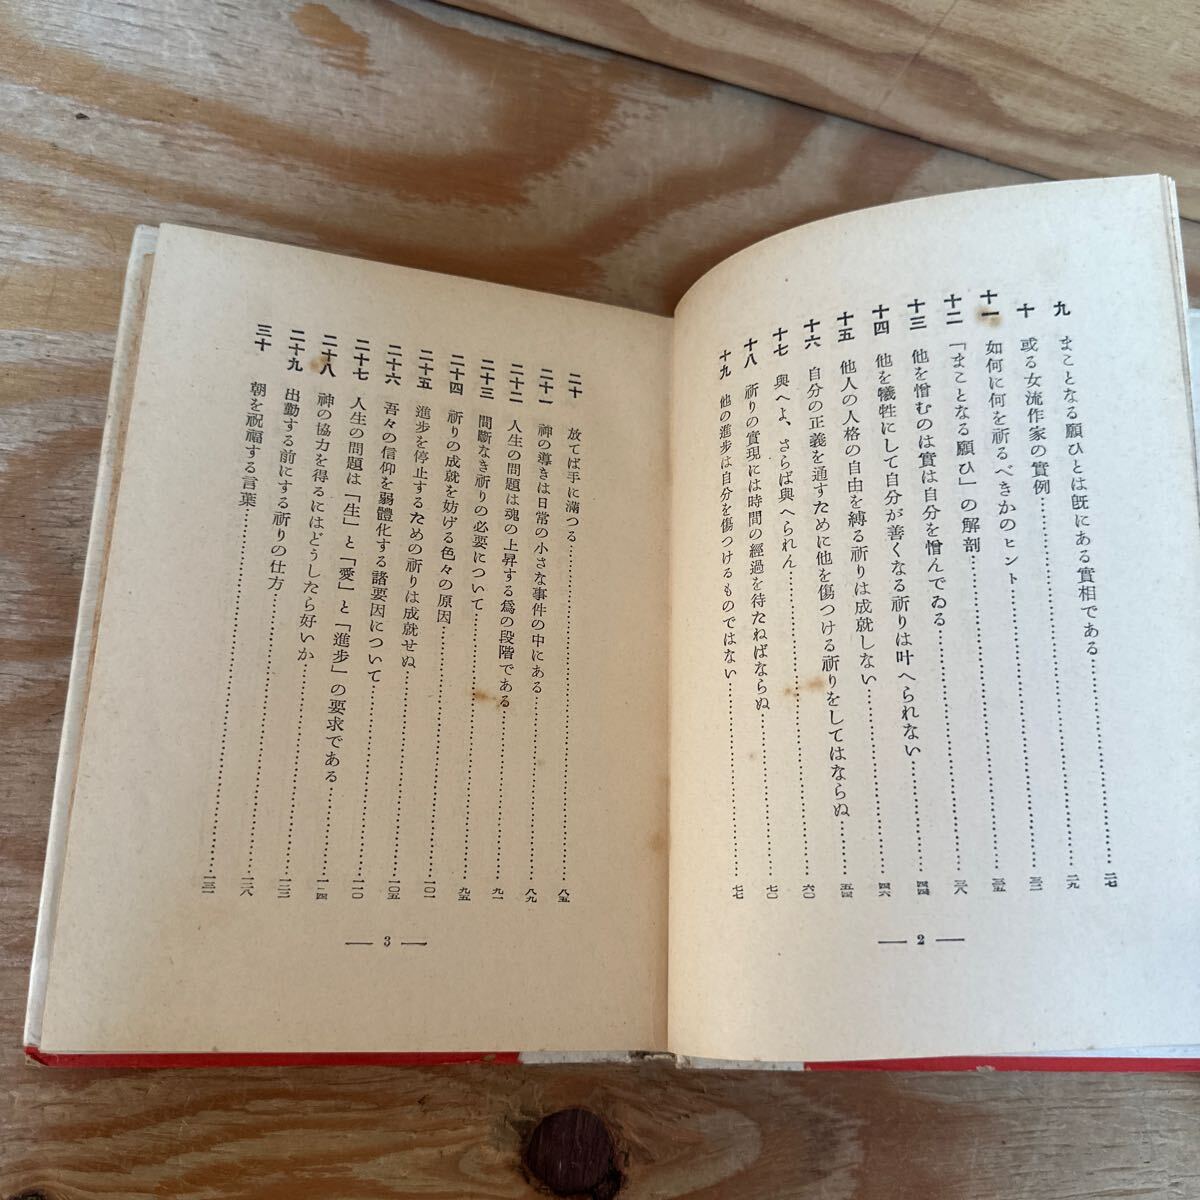 九 まことなる願ひとは既にある實相である……二七
十 或る女流作家の實例……二九
十一 如何に何を祈るべきかのヒント……三二
十二 「まことなる願ひ」の解剖……三五
十三 他を憎むのは實は自分を憎んでゐる……三八
十四 他を犠牲にして自分が善くなる祈りは叶へられない……四四
十五 他人の人格の自由を縛る祈りは成就しない……四六
十六 自分の正義を通すために他を傷つける祈りをしてはならぬ……五四
十七 與へよ、さらば與へられん……六〇
十八 祈りの實現には時間の經過を待たねばならぬ……七〇
十九 他の進歩は自分を傷つけるものではない……七七
— 2 —
二十 放てば手に滿つる……八五
二十一 神の導きは日常の小さな事件の中にある……八九
二十二 人生の問題は魂の上昇する爲の段階である……九一
二十三 間斷なき祈りの必要について……九五
二十四 祈りの成就を妨げる色々の原因……一〇一
二十五 進歩を停止するための祈りは成就せぬ……一〇五
二十六 吾々の信仰を弱體化する諸要因について……一一〇
二十七 人生の問題は「生」と「愛」と「進歩」の要求である……一一四
二十八 神の協力を得るにはどうしたら好いか……一二三
二十九 出勤する前にする祈りの仕方……一二八
三十 朝を祝福する言葉……一三一
— 3 —